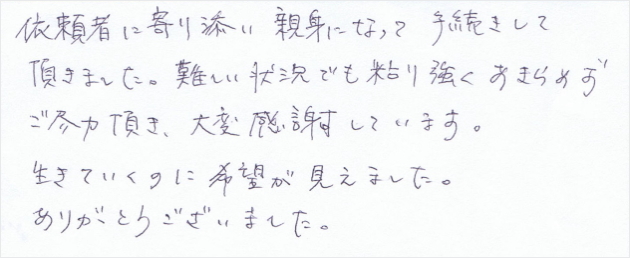 依頼者に寄り添い 親身になって 手続きして
頂きました。難しい状況でも粘り強くあきらめず
ご尽力頂き、大変感謝しています。
生きていくのに希望が見えました。
ありがとうございました。